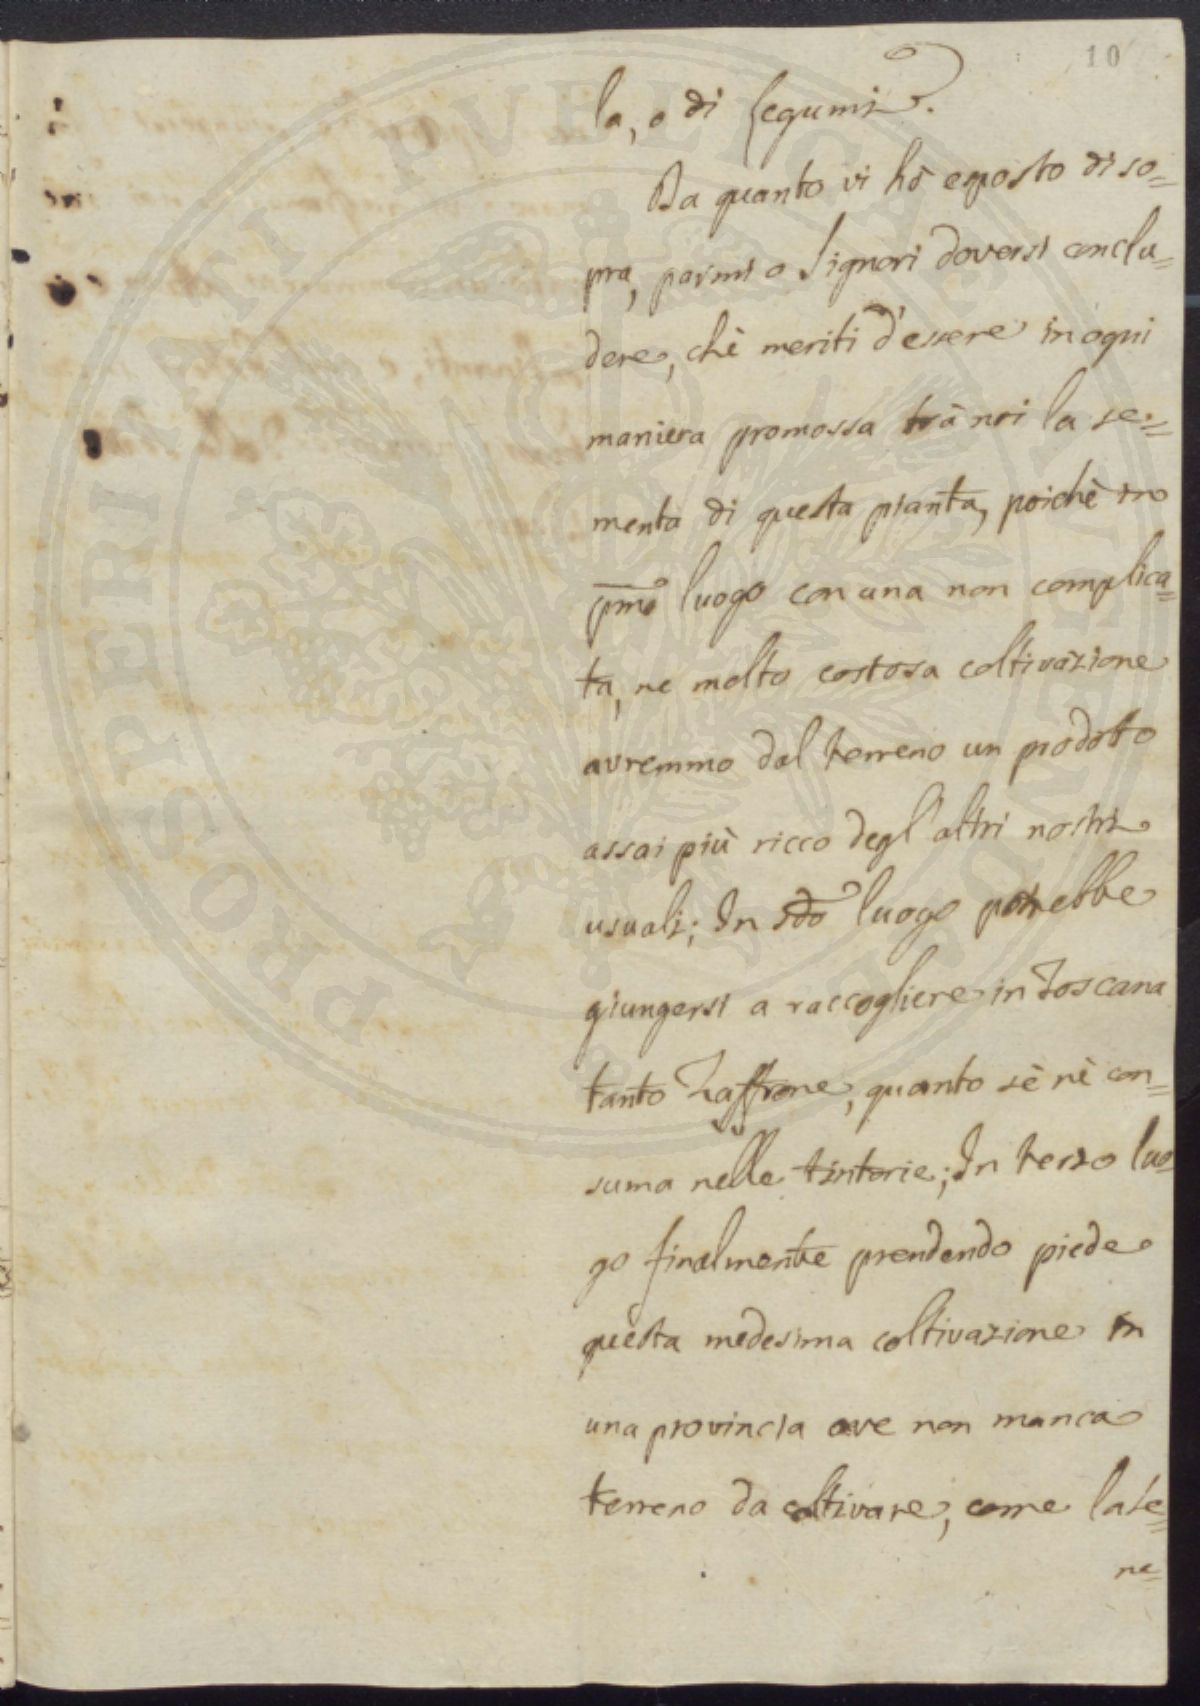 10
la, o di Legumi.
Da quanto vi hò esposto di so=
pra, parmi o Signori doversi conclu=
dere, chè meriti d'essere in ogni
maniera promossa trà noi la se=
menta di questa pianta, poichè in
pmo luogo con una non complica=
ta, ne molto costosa coltivazione
avremmo dal terreno un prodotto
assai più ricco degl'altri nostri
usuali; In sdo luogo potrebbe
giungersi a raccogliere in Toscana
tanto Zaffrone, quanto sè nè con=
suma nelle tintorie; In terzo luo=
go finalmente prendendo piede
questa medesima coltivazione in
una provincia ove non manca
terreno da coltivare, come la Se=
ne=
PROSPERITATI PVBLICAE AVGENDAE